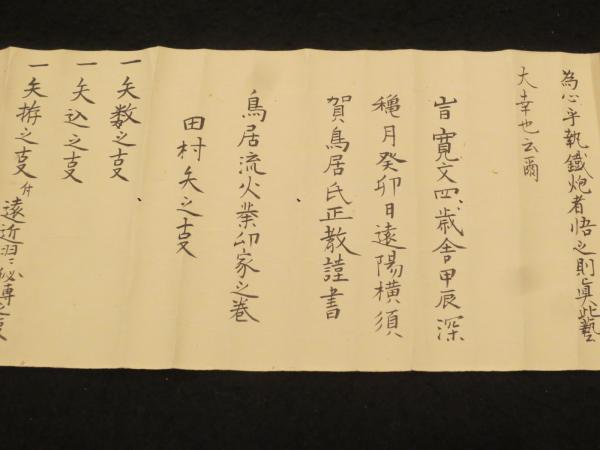 為心乎執鐵炮者悟之則眞此藝
大幸也云爾
旹寛文四歳舎甲辰深
穐月癸卯日遠陽横須
賀鳥居氏正教謹書
鳥居流火業印家之巻
田村矢之叓
一矢数之叓
一矢込之叓
一矢拵之叓付遠近ニ秘傳之叓